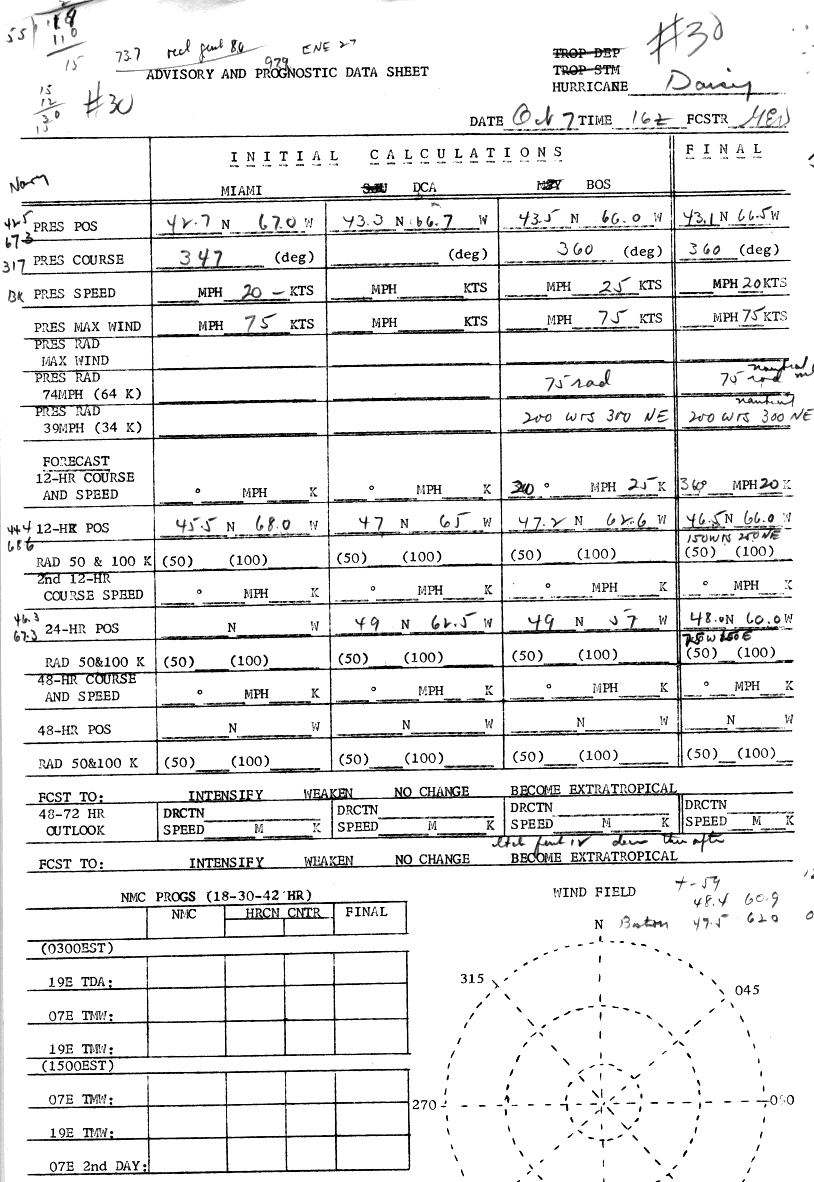 55 19
110
15
73.7 recd 86 ENE 27
929
#30
ADVISORY AND PROGNOSTIC DATA SHEET
TROP DEP
TROP STM
HURRICANE Daisy
15
12
30
15
#30
DATE Oct 7 TIME 16Z FCSTR
INITIAL CALCULATIONS FINAL
Navy
MIAMI DCA BOS
42.5
67.3
PRES POS 42.7 N 67.0 W 43.3 N 66.7 W 43.5 N 66.0 W 43.1 N 66.5 W
317 PRES COURSE 347 (deg) (deg) 360 (deg) 360 (deg)
BK PRES SPEED MPH 20 - KTS MPH KTS MPH 25 KTS MPH 20 KTS
PRES MAX WIND MPH 75 KTS MPH KTS MPH 75 KTS MPH 75 KTS
PRES RAD
MAX WIND
PRES RAD
74MPH (64 K) 75 rad 75 rad nautical
PRES RAD
39MPH (34 K) 200 WRS 300 NE 200 WRS 300 NE nautical
FORECAST
12-HR COURSE
AND SPEED ° MPH K ° MPH K 360 ° MPH 25 K 360° MPH 20 K
44.4
68.6
12-HR POS 45.5 N 68.0 W 47 N 65 W 47.2 N 62.6 W 46.5 N 66.0 W
150 WRS 250 NE
RAD 50 & 100 K (50) (100) (50) (100) (50) (100) (50) (100)
2nd 12-HR
COURSE SPEED ° MPH K ° MPH K ° MPH K ° MPH K
46.3
67.3
24-HR POS N W 49 N 62.5 W 49 N 57 W 48.0 N 60.0 W
75 W 250 E
RAD 50&100 K (50) (100) (50) (100) (50) (100) (50) (100)
48-HR COURSE
AND SPEED ° MPH K ° MPH K ° MPH K ° MPH K
48-HR POS N W N W N W N W
RAD 50&100 K (50) (100) (50) (100) (50) (100) (50) (100)
FCST TO: INTENSIFY WEAKEN NO CHANGE BECOME EXTRATROPICAL
48-72 HR DRCTN DRCTN DRCTN DRCTN
OUTLOOK SPEED M K SPEED M K SPEED M K SPEED M K
FCST TO: INTENSIFY WEAKEN NO CHANGE BECOME EXTRATROPICAL
NMC PROGS (18-30-42 HR)
NMC HRCN CNTR FINAL
(0300EST)
19E TDA:
07E TMW:
19E TMW:
(1500EST)
07E TMW:
19E TMW:
07E 2nd DAY:
WIND FIELD
48.4 60.9
N Boston 49.5 62.0
315 045
270 090